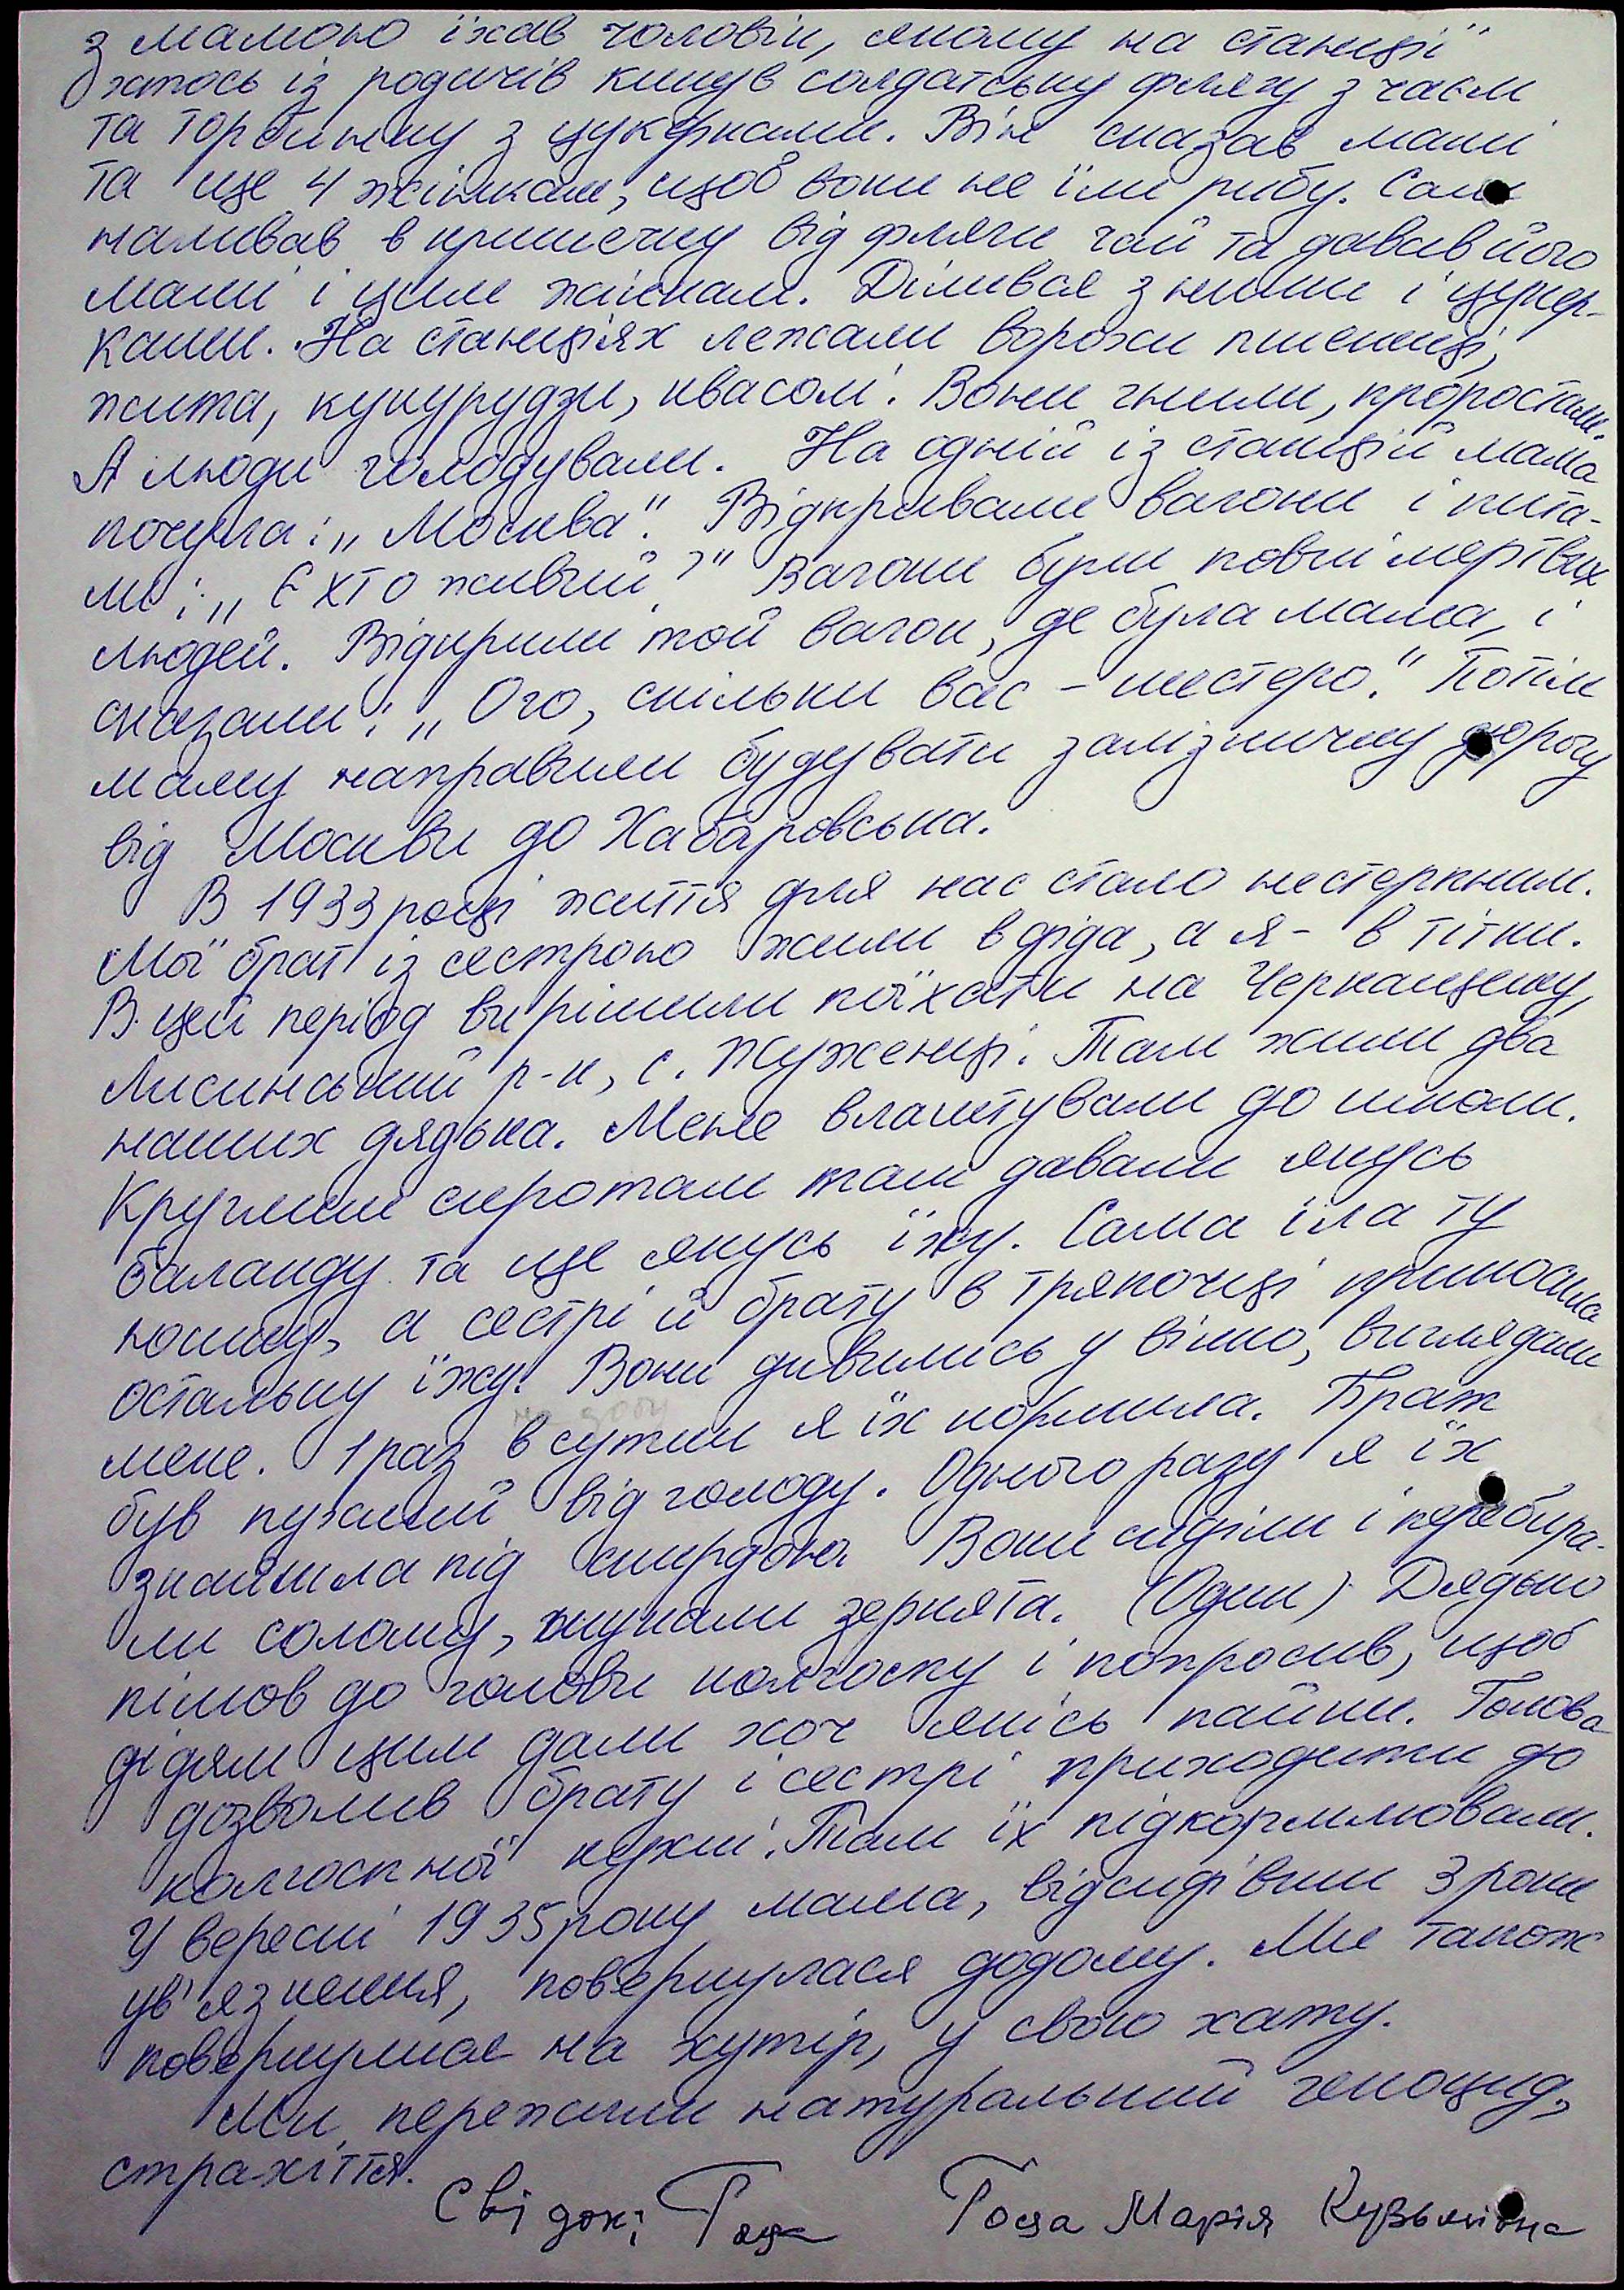 з мамою їхав чоловік, якому на станції
хтось із родичів кинув солдатську флягу з чаєм
та торбинку з цукерками. Він сказав мамі
та ще 4 жінкам, щоб вони не їли рибу. Сам
наливав в кришечку від фляги чай та давав його
мамі і цим жінкам. Ділився з ними і цукер-
ками. На станціях лежали ворохи пшениці,
жита, кукурудзи, квасолі. Вони гнили, проростали.
А люди голодували. На одній із станцій мама
почула: „Москва". Відкривали вагони і пита-
ли: „Є хто живий?" Вагони були повні мертвих
людей. Відкрили той вагон, де була мама, і
сказали: „Ого, скільки вас – шестеро." Потім
маму направили будувати залізничну дорогу
від Москви до Хабаровська.
В 1933 році життя для нас стало нестерпним.
Мої брат із сестрою жили в діда, а я – в тітки.
В цей період вирішили поїхати на Черкащину,
Лисинський р-н, с. Журженці. Там жили два
наших дядька. Мене влаштували до школи.
Круглим сиротам там давали якусь
баланду та ще якусь їжу. Сама їла ту
юшку, а сестрі й брату в тряпочці приносила
остальну їжу. Вони дивились у вікно, виглядали
мене. 1 раз в сутки я їх кормила. Брат
на добу
був пухлий від голоду. Одного разу я їх
знайшла під скирдою. Вони сиділи і перебира-
ли солому, шукали зернята. (Один) Дядько
пішов до голови колгоспу і попросив, щоб
дідям цим дали хоч якісь пайки. Голова
дозволив брату і сестрі приходити до
колгоспної кухні. Там їх підкормлювали.
У вересні 1935 року мама, відсидівши 3 роки
ув'язнення, повернулася додому. Ми також
повернулися на хутір, у свою хату.
Ми пережили натуральний геноцид,
страхіття.
Свідок: Гоца Гоца Марія Кузьмівна